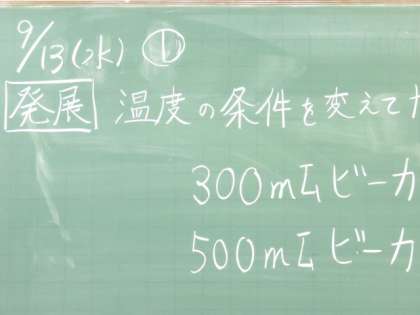 9/13(水) ①
発展 温度の条件を変えて
300mLビーカ
500mLビーカ